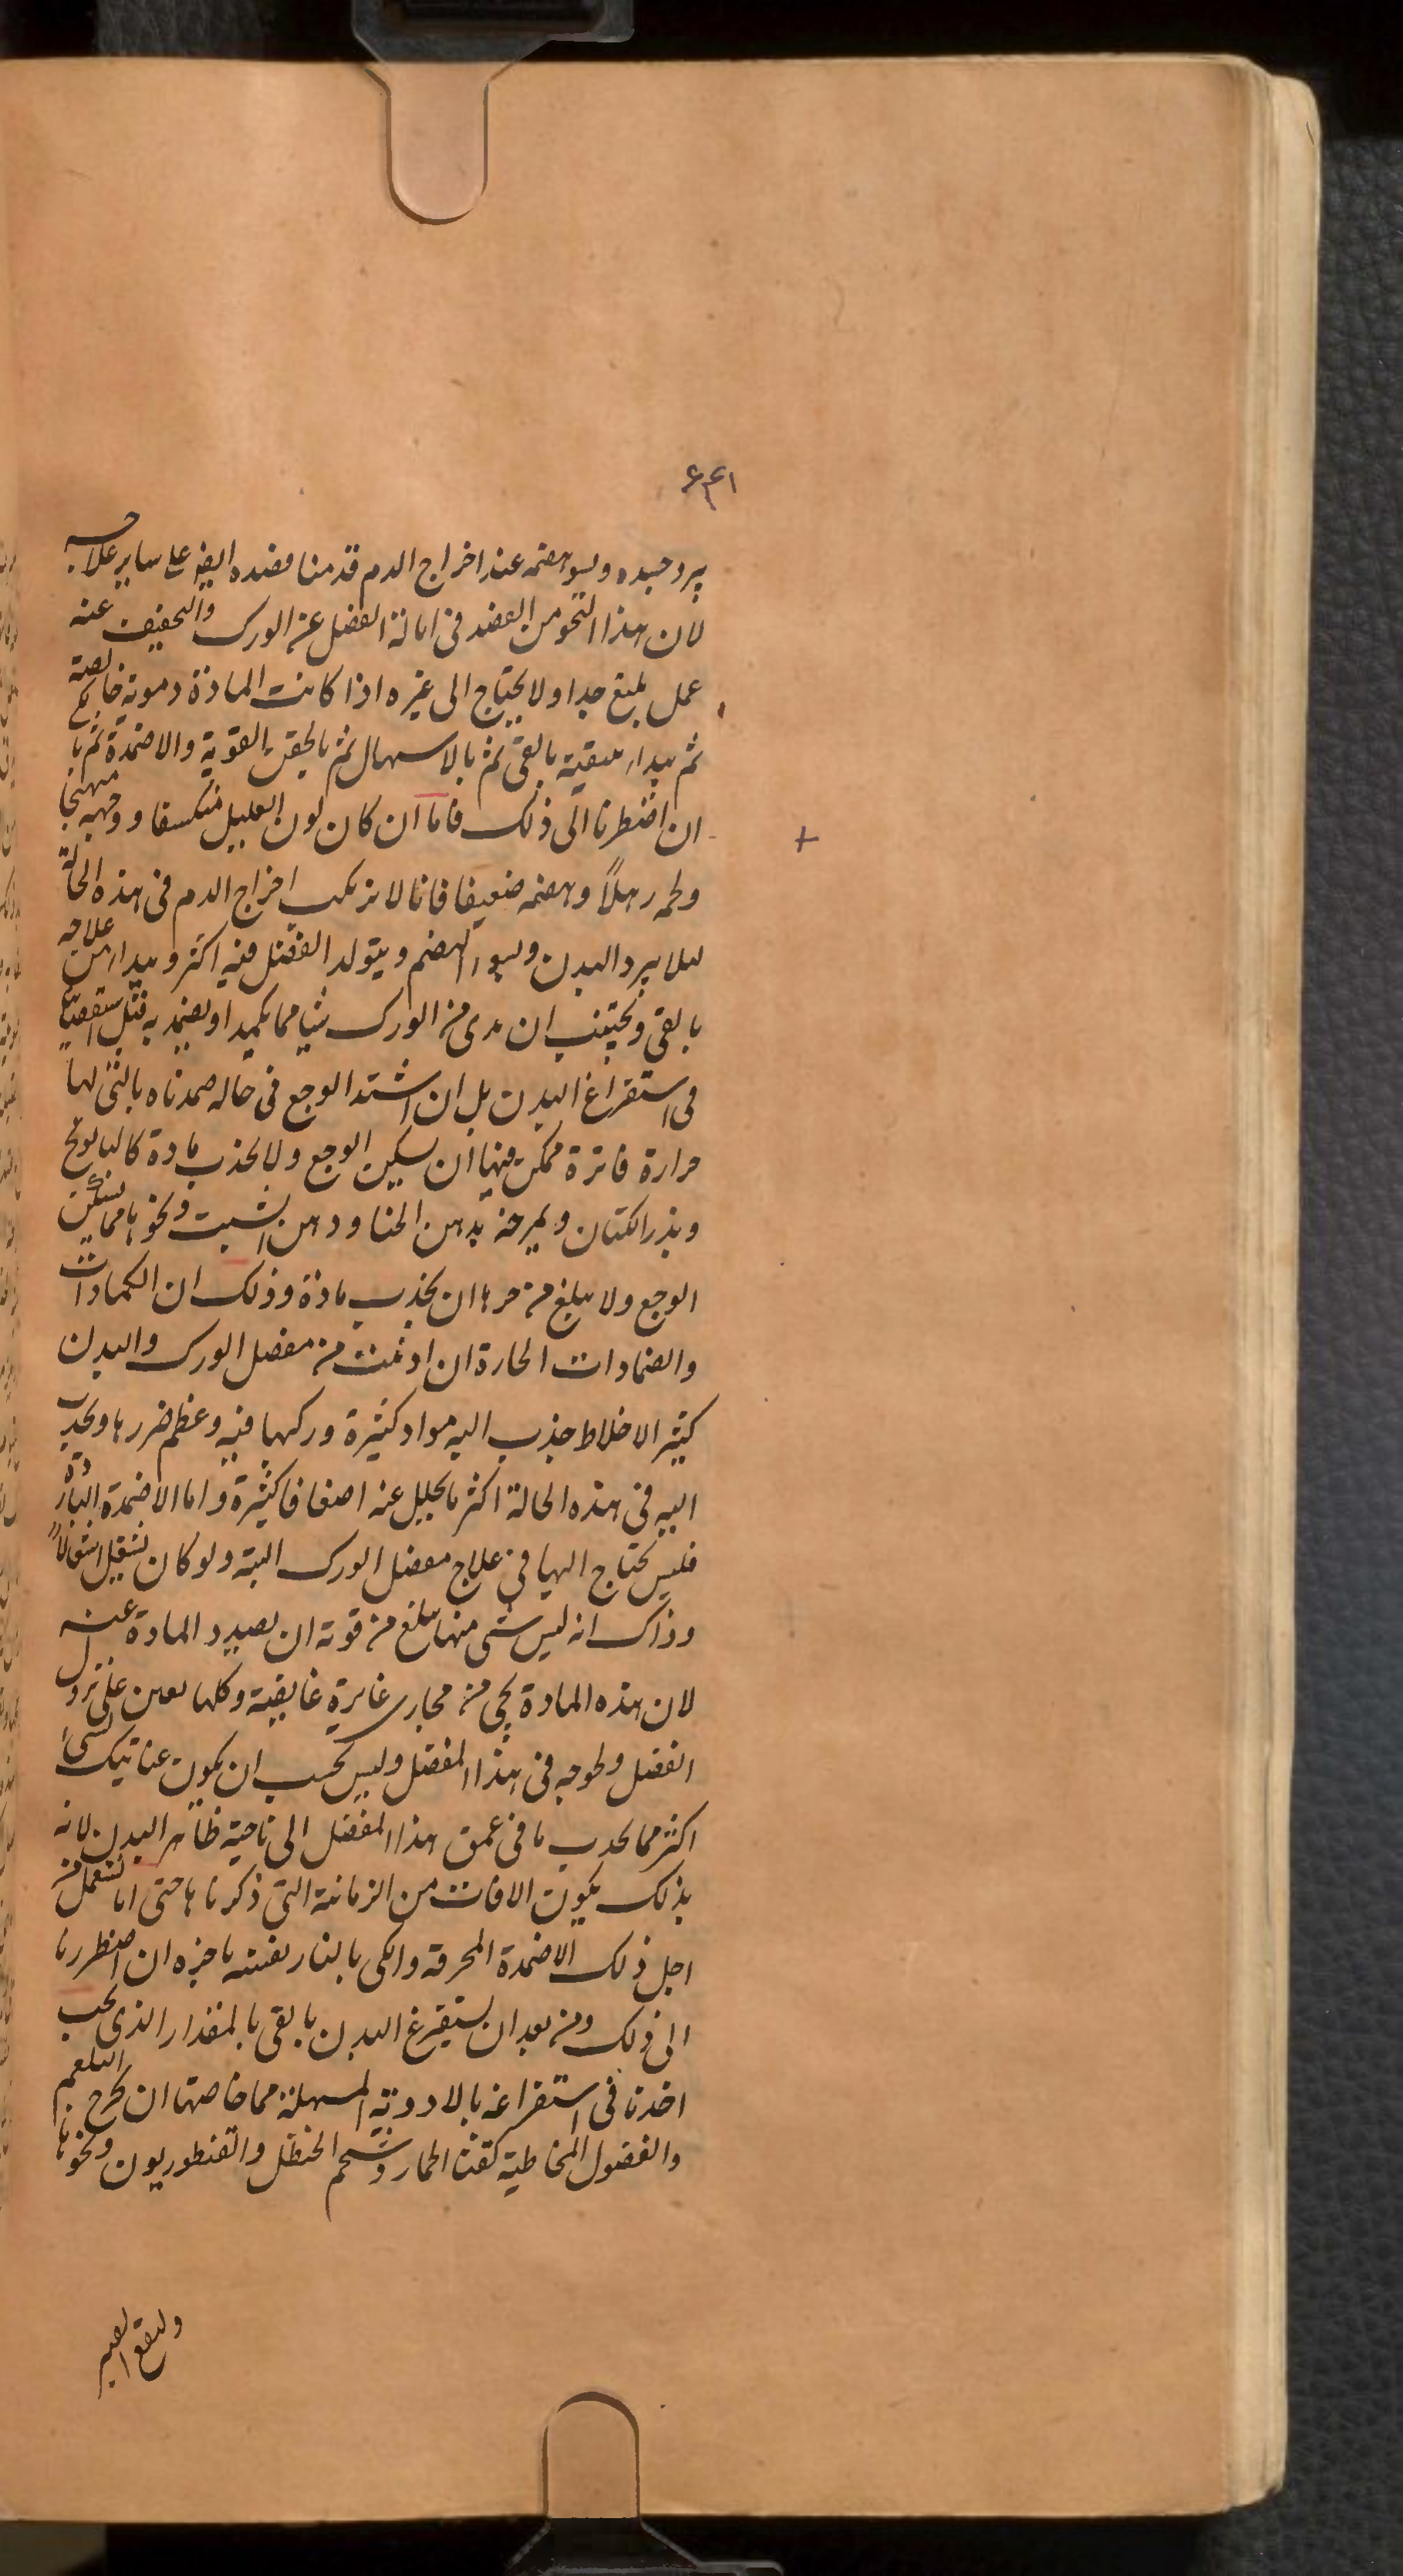 ۶۳۱
يبرد جسده ويسو هضمه عند اخراج الدم قدمنا فصده ايضا على ساير علاجه
لان هذا النحو من الفصد فى امالة الفضل عن الورك والتخفيف عنه
عمل بليغ جدا ولا يحتاج الى غيره اذا كانت المادة دموية خالصة
ثم يبدا بتنقية بالقى ثم بالاسهال ثم بالحقن القوية والاضمدة ثم بالكى
ان اضطرنا الى ذلك فاما ان كان لون العليل منكسفا ووجهه متهبجا
ولحمه رهلاً وهضمه ضعيفا فانا لا نركب اخراج الدم فى هذه الحالة
ليلا يبرد البدن ويسوء الهضم ويتولد الفضل فيه اكثر ونبدا من علاجه
بالقى ونجتنب ان ندنى من الورك شيا مما يكمد او يضمد به قبل استقصائنا
فى استفراغ البدن بل ان اشتد الوجع فى حاله ضمدناه بالتى لها
حرارة فاترة ممكن فيها ان يسكن الوجع ولا يجذب مادة كالبابونج
وبذر الكتان ويمرخه بدهن الحنا ودهن الشبت ونحوها مما يسكن
الوجع ولا يبلغ من حرها ان يجذب مادة وذلك ان الكمادات
والضمادات الحارة ان ادنيت من مفصل الورك والبدن
كثير الاخلاط جذب اليه مواد كثيرة وركبها فيه وعظم ضررها ويجذب
اليه فى هذه الحالة اكثر ما يحلل عنه اضعافا كثيرة واما الاضمدة الباردة
فليس يحتاج اليها فى علاج مفصل الورك البتة ولو كان يشتعل اشتعالاً
وذاك انه ليس شى منها يبلغ من قوته ان يصد المادة عنه
لان هذه المادة تجى من مجارى غايرة عايقية وكلها يعين على نزول
الفضل ولحوجه فى هذا المفصل وليس يجب ان يكون عنايتك لشىء
اكثر مما يجذب ما فى عمق هذا المفصل الى ناحية ظاهر البدن لانه
بذلك يكون الافات من الزمانة التى ذكرناها حتى انا نستعمل من
اجل ذلك الاضمدة المحرقة والكى بالنار نفسه باخره ان اضطررنا
الى ذلك ومن بعد ان يستفرغ البدن بالقى بالمقدار الذى يجب
اخذنا فى استفراغه بالادوية المسهلة مما خاصتها ان يخرج البلغم
والفضول المخاطية كقثا الحمار وشحم الحنظل والقنطوريون ونحوها